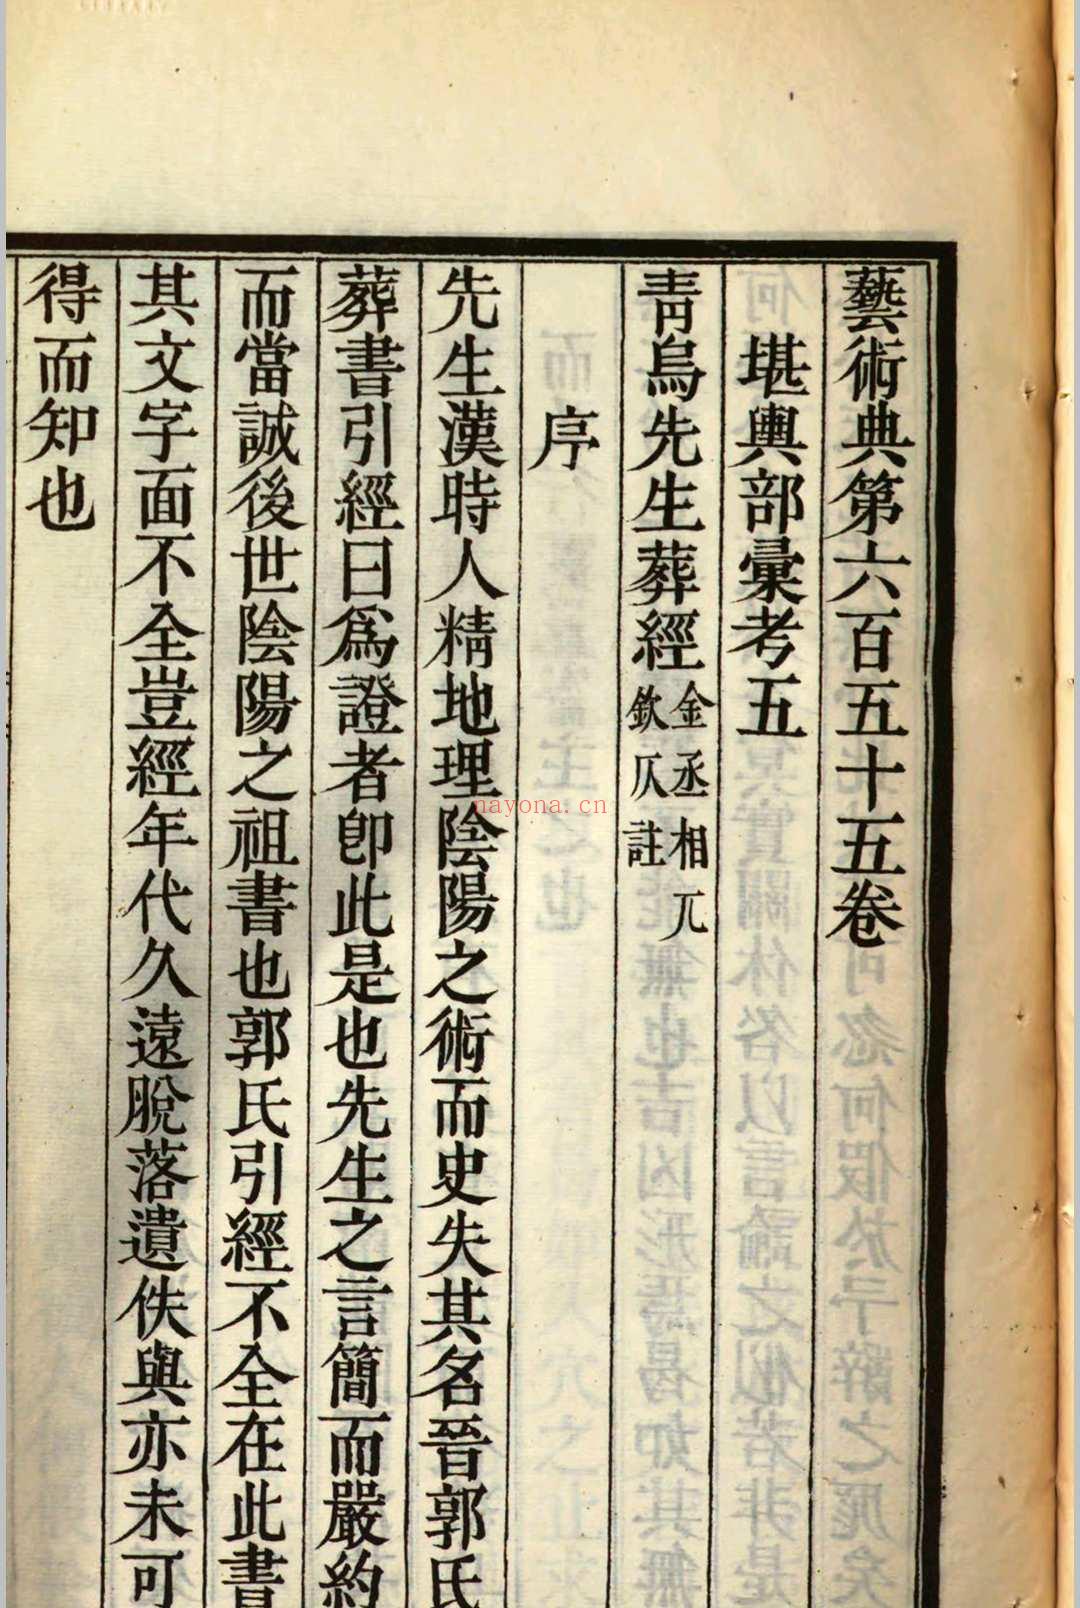 藝術典第六百五十五卷
堪輿部彙考五
青烏先生葬經金丞相兀
欽仄註
序
先生漢時人精地理陰陽之術而史失其名晉郭氏
葬書引經曰爲證者卽此是也先生之言簡而嚴約
而當誠後世陰陽之祖書也郭氏引經不全在此書
其文字面不全豈經年代久遠脫落遺佚與亦未可
得而知也
nayona.cn